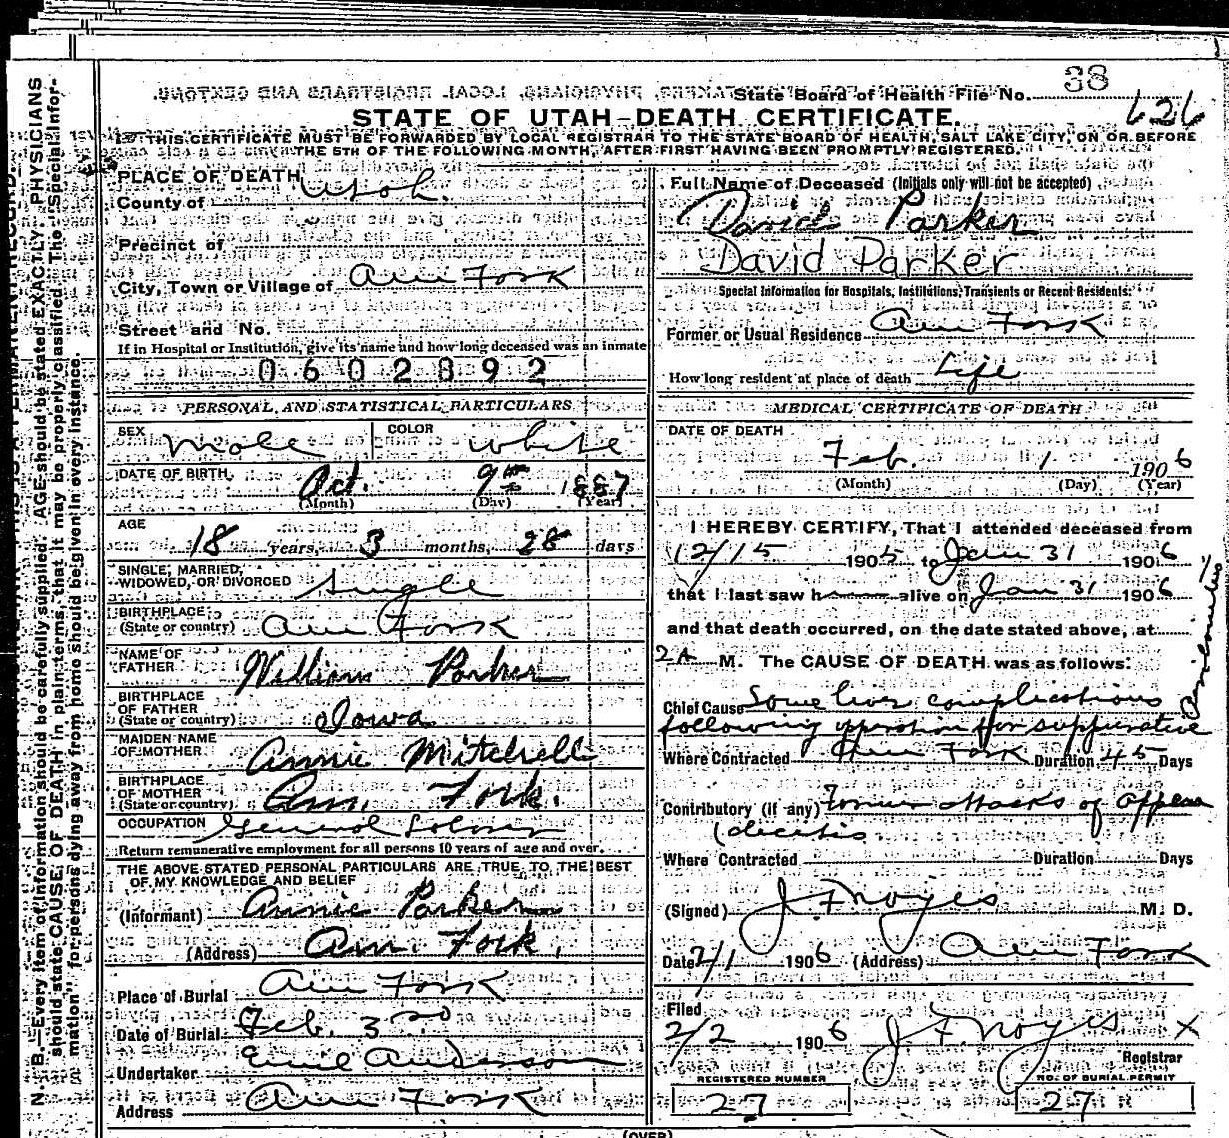 State Board of Health File No. 38
626
STATE OF UTAH-DEATH CERTIFICATE.
THIS CERTIFICATE MUST BE FORWARDED BY LOCAL REGISTRAR TO THE STATE BOARD OF HEALTH, SALT LAKE CITY, ON OR BEFORE
THE 5TH OF THE FOLLOWING MONTH, AFTER FIRST HAVING BEEN PROMPTLY REGISTERED.
N. B.—Every item of information should be carefully supplied. AGE should be stated EXACTLY. PHYSICIANS
should state CAUSE OF DEATH in plain terms, that it may be properly classified. The "Special Infor-
mation" for persons dying away from home should be given in every instance.
PLACE OF DEATH
County of Utah.
Precinct of
City, Town or Village of Am Fork
Street and No.
If in Hospital or Institution, give its name and how long deceased was an inmate
0602892
PERSONAL AND STATISTICAL PARTICULARS
SEX Male COLOR White
DATE OF BIRTH Oct. 9th 1887
(Month) (Day) (Year)
AGE
18 years, 3 months, 28 days
SINGLE, MARRIED,
WIDOWED, OR DIVORCED Single
BIRTHPLACE
(State or country) Am Fork
NAME OF
FATHER William Parker
BIRTHPLACE
OF FATHER
(State or country) Iowa
MAIDEN NAME
OF MOTHER Annie Mitchell
BIRTHPLACE
OF MOTHER
(State or country) Am. Fork.
OCCUPATION General Laborer
Return remunerative employment for all persons 10 years of age and over.
THE ABOVE STATED PERSONAL PARTICULARS ARE TRUE TO THE BEST
OF MY KNOWLEDGE AND BELIEF
(Informant) Annie Parker
(Address) Am. Fork.
Place of Burial Am Fork
Date of Burial Feb. 3rd
Undertaker Emil Anderson
Address Am Fork
Full Name of Deceased (Initials only will not be accepted)
David Parker
David Parker
Special Information for Hospitals, Institutions, Transients or Recent Residents:
Former or Usual Residence Am Fork
How long resident at place of death Life
MEDICAL CERTIFICATE OF DEATH
DATE OF DEATH
Feb. 1 1906
(Month) (Day) (Year)
I HEREBY CERTIFY, That I attended deceased from
12/15 1905 to Jan 31 1906
that I last saw h alive on Jan 31 1906
and that death occurred, on the date stated above, at
2 A M. The CAUSE OF DEATH was as follows:
Chief Cause Some liver complications
following operation for suppurative
Where Contracted Am Fork Duration 45 Days
Contributory (if any) Former attacks of appen
dicitis
Where Contracted Duration Days
(Signed) J. F. Noyes M. D.
Date 2/1 1906 (Address) Am Fork
Filed
2/2 1906 J F Noyes X
Registrar
REGISTERED NUMBER
27
NO. OF BURIAL PERMIT
27
(OVER)